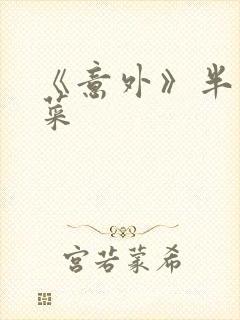 《意外》半
菜
宫若蒙希